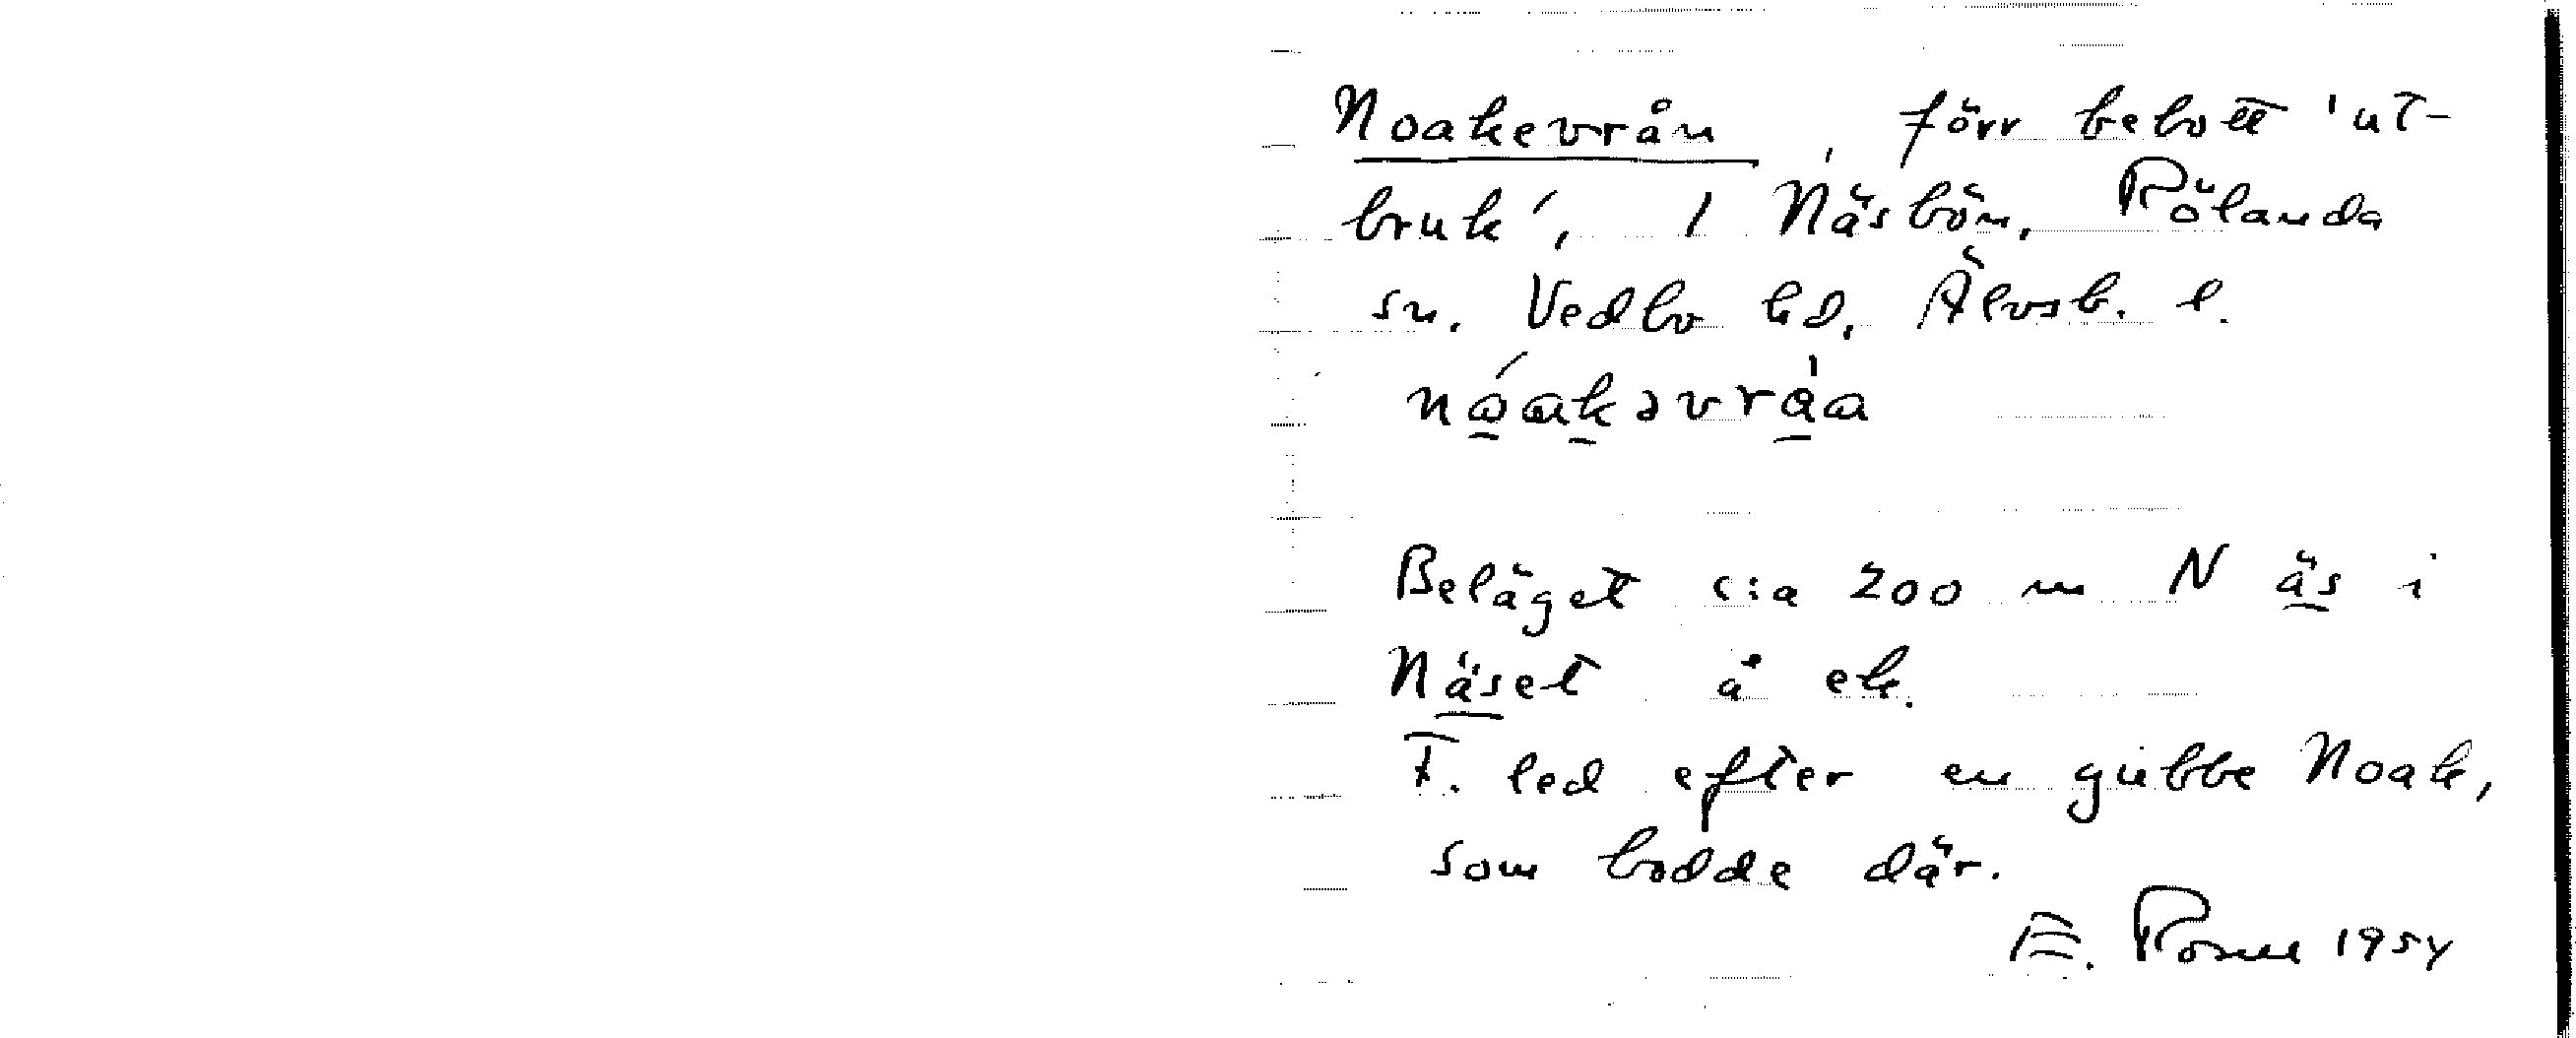 Noakevrån, förr bebott 'ut-
bruk', 1 Näsbön, Rölanda
sn. Vedbo hd. Älvsb. l.
nóakəvràa
Beläget c:a 200 m N äs i
Näset å ek.
F. led efter en gubbe Noak,
som bodde där.
E. 1954